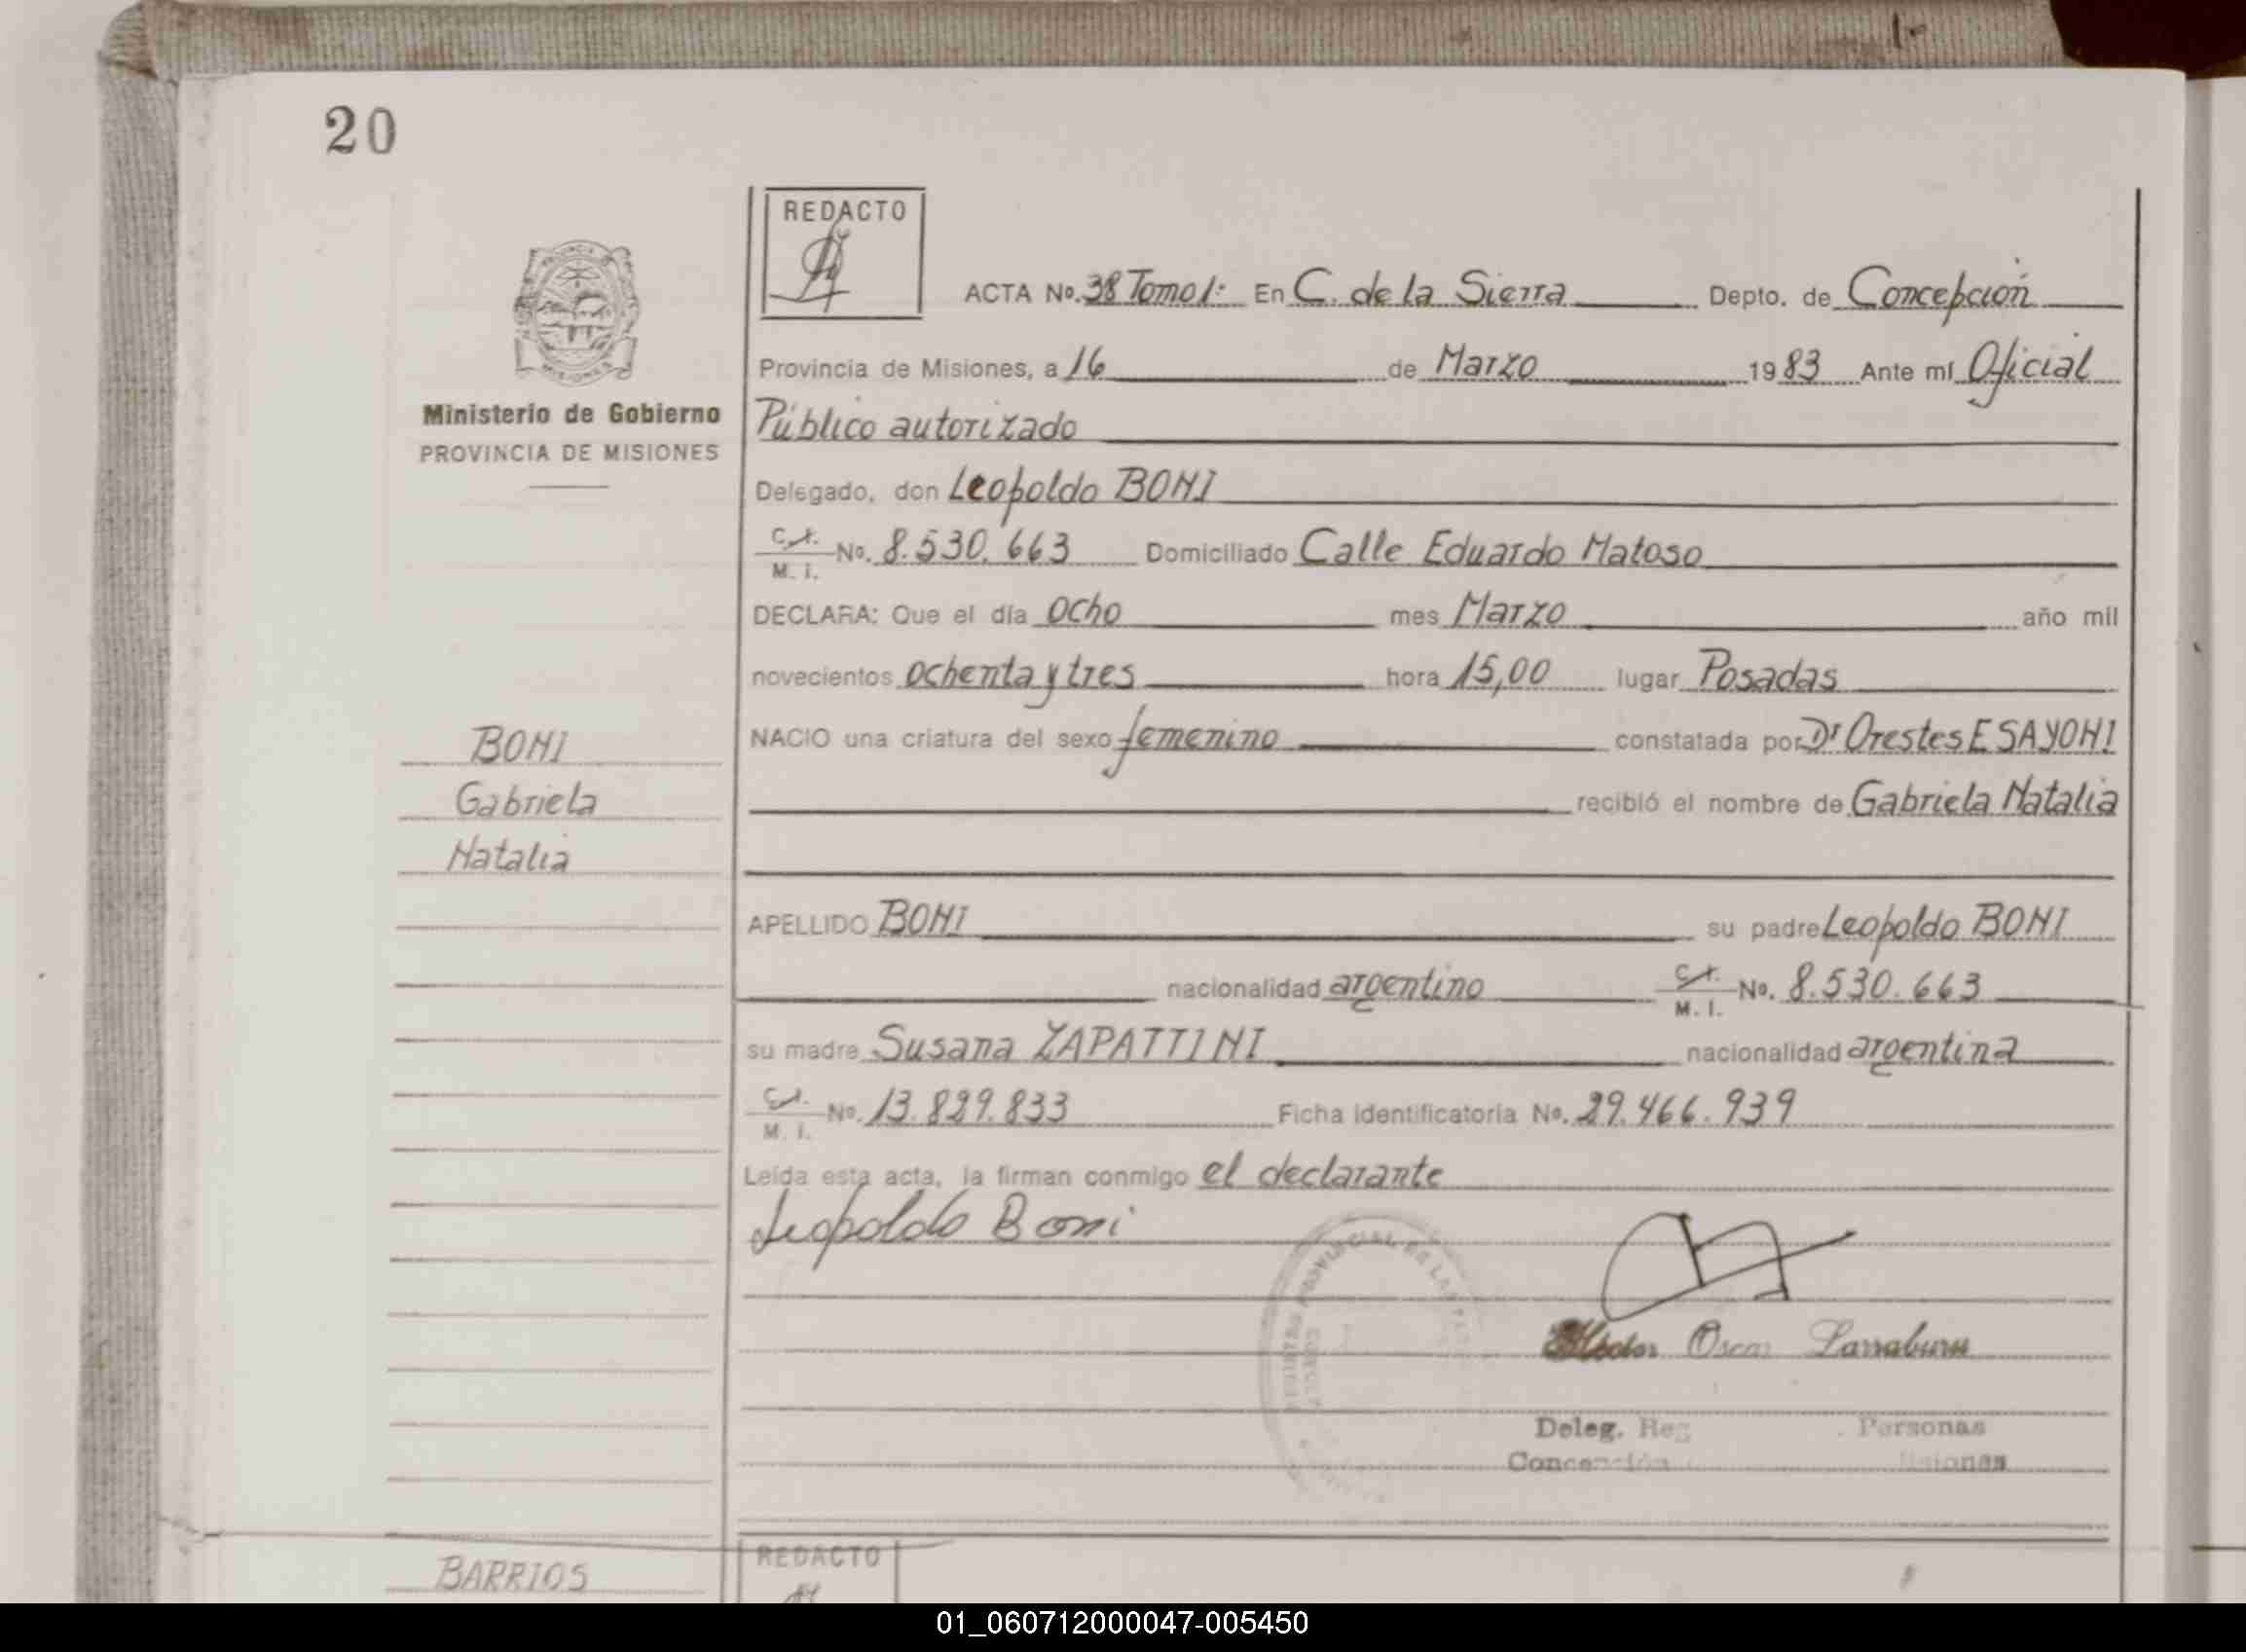 20
REDACTO
ACTA No. 38 Tomo 1: En C. de la Sierra Depto. de Concepción
Provincia de Misiones, a 16 de Marzo 1983 Ante mí Oficial
Ministerio de Gobierno
PROVINCIA DE MISIONES
Público autorizado
Delegado, don Leopoldo BONI
C.I. M. I. No. 8.530.663 Domiciliado Calle Eduardo Matoso
DECLARA: Que el día ocho mes Marzo año mil
novecientos ochenta y tres hora 15,00 lugar Posadas
BONI
NACIO una criatura del sexo femenino constatada por Dr Orestes ESAYONI
Gabriela
recibió el nombre de Gabriela Natalia
Natalia
APELLIDO BONI su padre Leopoldo BONI
nacionalidad argentino C.I. M. I. No. 8.530.663
su madre Susana ZAPATTINI nacionalidad argentina
C.I. M. I. No. 13.829.833 Ficha identificatoria No. 29.466.939
Leída esta acta, la firman conmigo el declarante
Leopoldo Boni
PROVINCIAL DE LAS
Héctor Oscar Larraburu
Deleg. Reg Personas
Concepción
BARRIOS
REDACTO
01_060712000047-005450